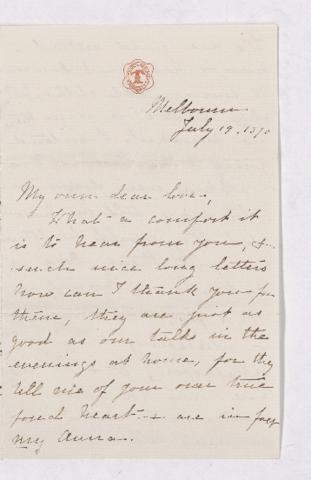 Melbourn
July 19. 1870
My own dear love,
What a comfort it
is to hear from you, &
such nice long letters
how can I thank you for
them, they are just as
good as our talks in the
evenings at home, for they
tell me of your own true
fond heart & are in fact
my Anna.